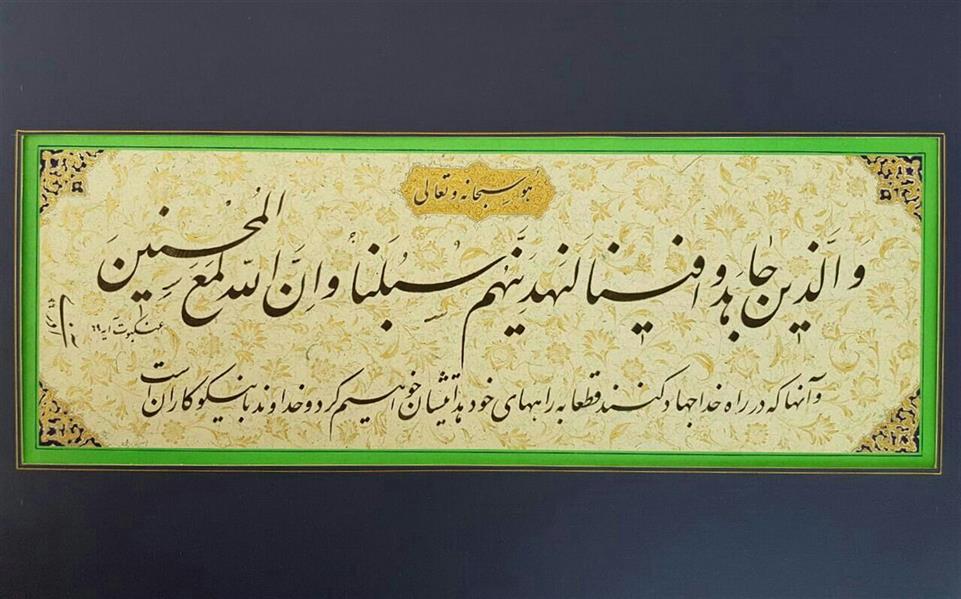 هُو سبحانه و تعالی
وَالَّذین جاهدوا فینا لنهدینَّهُم سُبلَنا وَاِنَّ اللّه لَمَعَ المُحْسِنِینَ
عنکبوت آیه ۶۹
و آنها که در راه خدا جهاد کنند قطعا به راههای خود هدایتشان خواهیم کرد و خداوند با نیکوکاران است